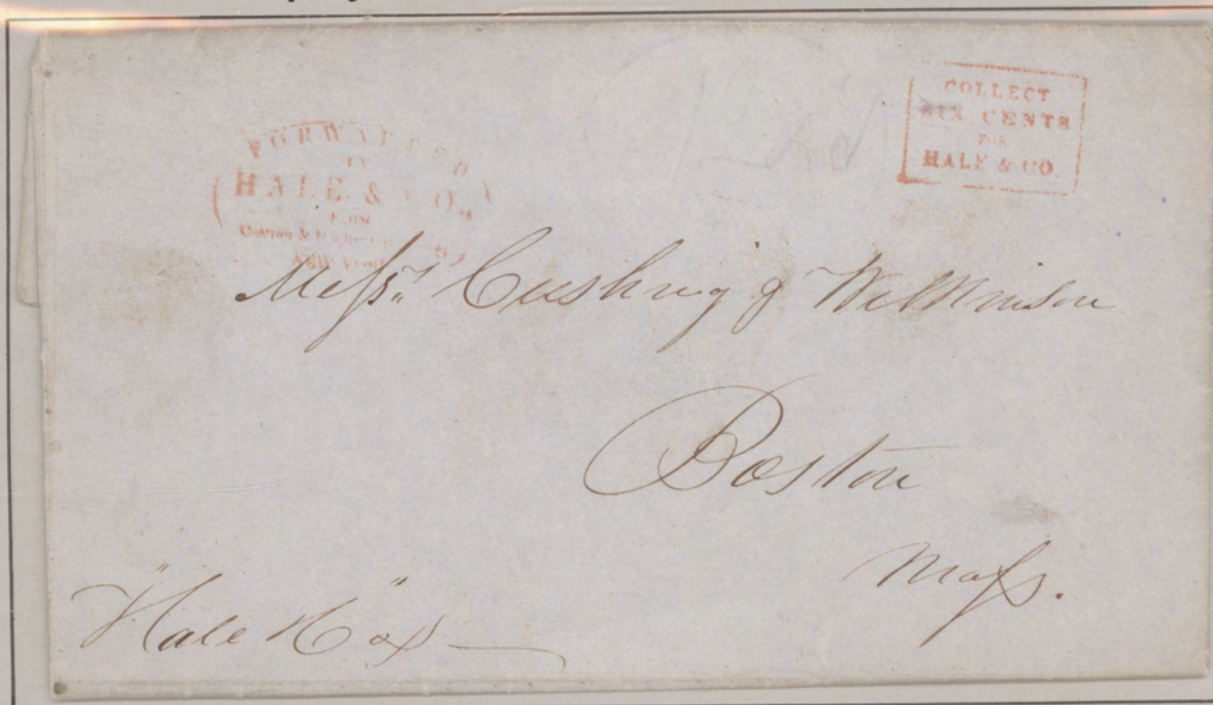 FORWARDED
BY
HALE & CO.
FROM
NEW YORK
COLLECT
SIX CENTS
FOR
HALE & CO.
Messrs. Cushing & Wilkinson
Boston
Mass.
"Hale & Co"